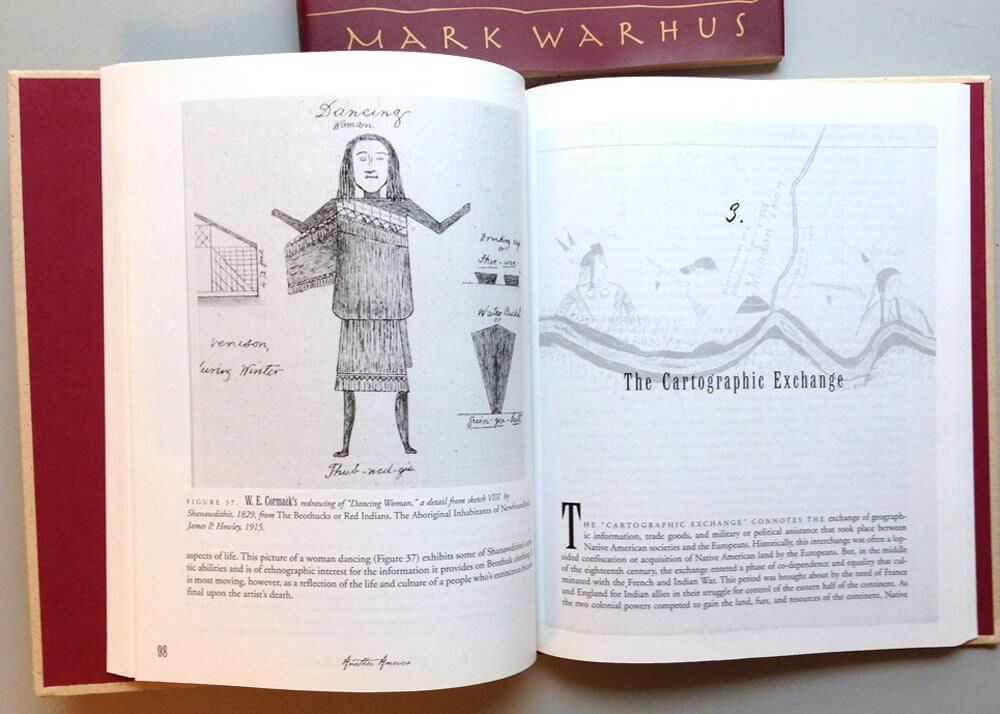 MARK WARHUS
Dancing
Woman
Drinking Cup
or
Water Bucket
or
venison,
Winter
Thub-wed-gie
FIGURE 37. W. E. Cormack's redrawing of "Dancing Woman," a detail from sketch VIII by
Shanawdithit, 1829, from The Beothucks or Red Indians, The Aboriginal Inhabitants of Newfoundland
James P. Howley, 1915.
aspects of life. This picture of a woman dancing (Figure 37) exhibits some of Shanawdithit's
tic abilities and is of ethnographic interest for the information it provides on Beothuk clothing
is most moving, however, as a reflection of the life and culture of a people who's extinction became
final upon the artist's death.
98
Another America
3.
Mandan Town
The Cartographic Exchange
THE "CARTOGRAPHIC EXCHANGE" CONNOTES THE exchange of geograph-
ic information, trade goods, and military or political assistance that took place between
Native American societies and the Europeans. Historically, this interchange was often a lop-
sided confiscation or acquisition of Native American land by the Europeans. But, in the middle
of the eighteenth century, the exchange entered a phase of co-dependence and equality that cul-
minated with the French and Indian War. This period was brought about by the need of France
and England for Indian allies in their struggle for control of the eastern half of the continent. As
the two colonial powers competed to gain the land, furs, and resources of the continent, Native